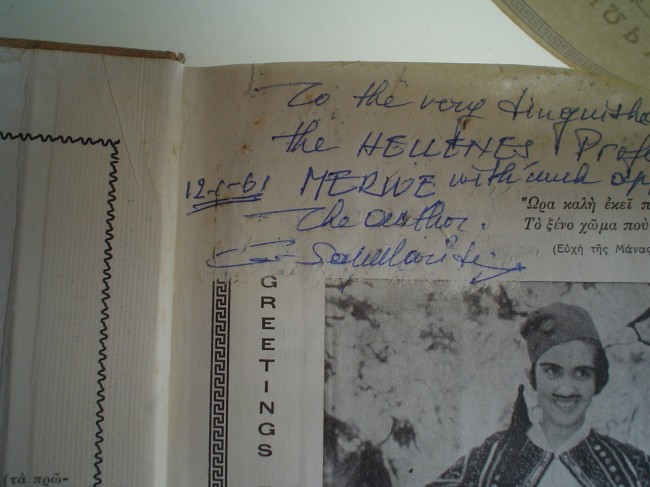 To the very dinguishe
the HELLENES Prof
12-1-61 MERWE with much ap
The author.
"Ωρα καλὴ ἐκεῖ π
Τὸ ξένο χῶμα ποὺ
(Εὐχὴ τῆς Μάνας
GREETINGS
(τὰ πρῶ-